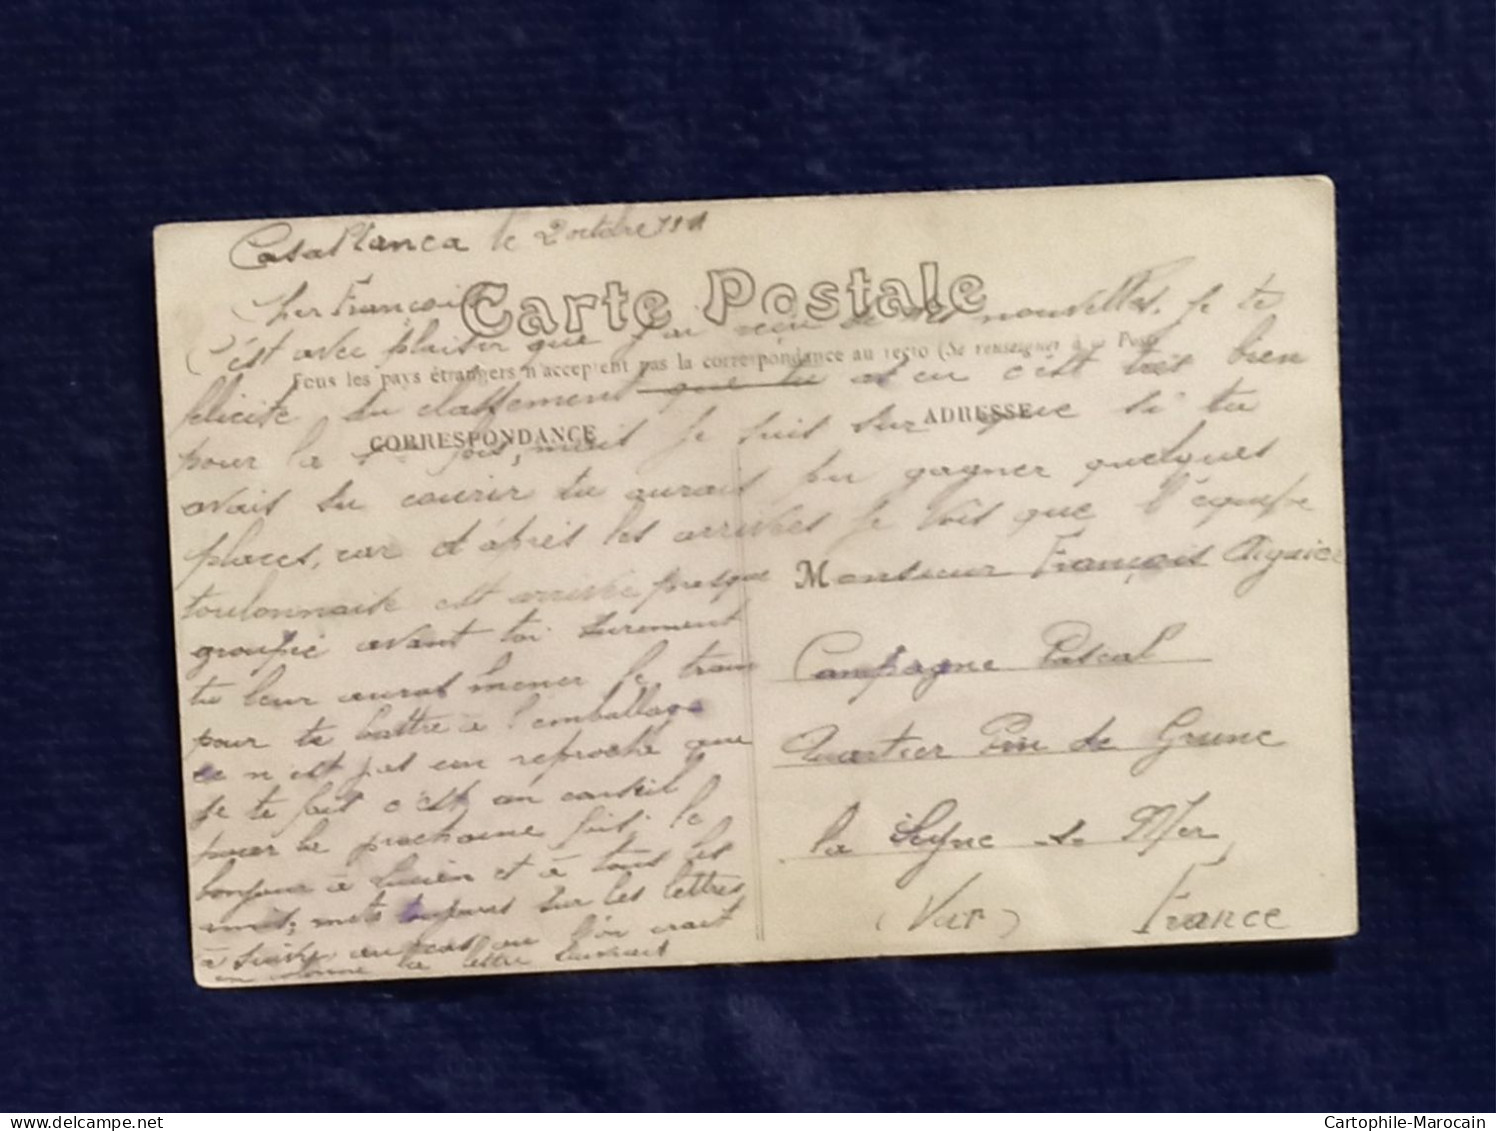 Casablanca le 2 octobre 1911
Cher François
Carte Postale
C'est avec plaisir que j'ai reçu de tes nouvelles. Je te
Tous les pays étrangers n'acceptent pas la correspondance au recto (Se renseigner à la Poste
félicite du classement que tu as eu c'est très bien
CORRESPONDANCE
ADRESSE
pour la 1re fois, mais je suis sur que si tu
avais su courir tu aurais pu gagner quelques
places, car d'après les arrivées je vois que l'équipe
toulonnaise est arrivée presque
groupée avant toi surement
tu leur auras mener le train
pour te battre à l'emballage
ce n'est pas un reproche que
je te fais c'est un conseil
pour la prochaine fois. le
bonjour à Lucien et à tous les
amis, mets toujours sur les lettres
à suivre au cas ou l'on irait
en colonne la lettre suivrait
Monsieur François Aiguier
Campagne Pascal
Quartier Pin de Grune
la Seyne s. Mer
(Var) France
Cartophile-Marocain